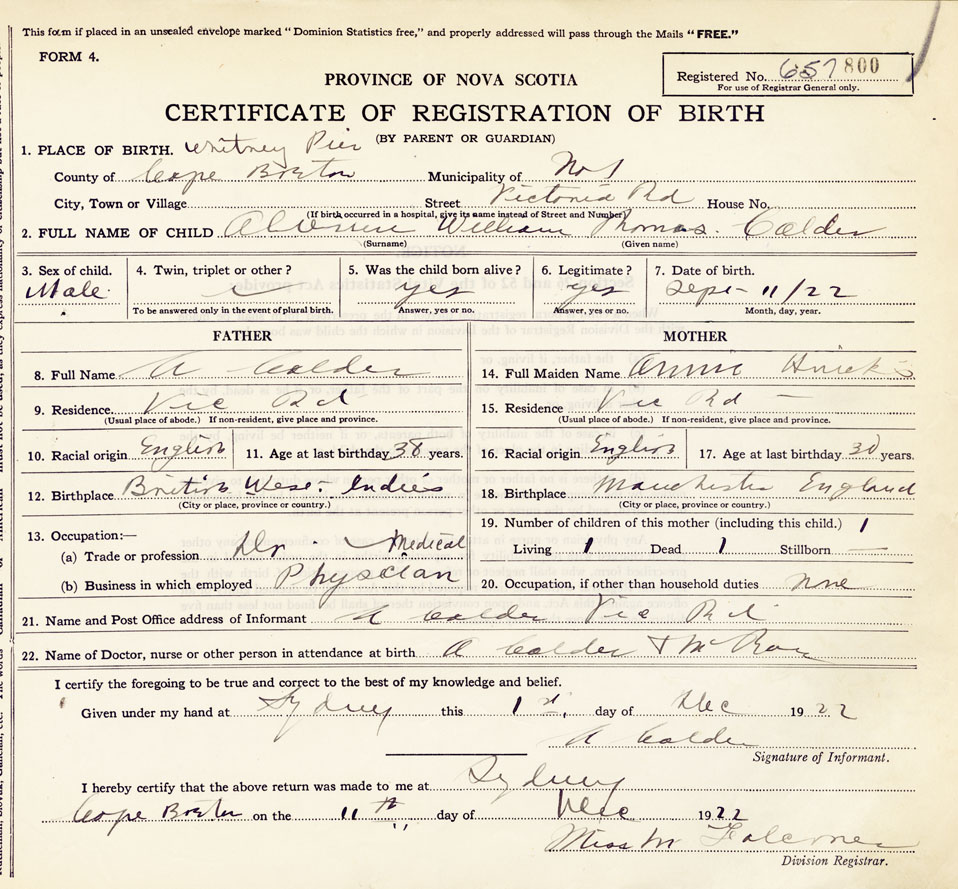 This form if placed in an unsealed envelope marked “Dominion Statistics free,” and properly addressed will pass through the Mails “FREE.”
FORM 4.
Registered No. 657800
For use of Registrar General only.
PROVINCE OF NOVA SCOTIA
CERTIFICATE OF REGISTRATION OF BIRTH
(BY PARENT OR GUARDIAN)
1. PLACE OF BIRTH. Whitney Pier
County of Cape Breton Municipality of No 1
City, Town or Village Street Victoria Rd House No.
(If birth occurred in a hospital, give its name instead of Street and Number)
2. FULL NAME OF CHILD William Thomas. Calder
(Surname) (Given name)
3. Sex of child. 4. Twin, triplet or other? 5. Was the child born alive? 6. Legitimate? 7. Date of birth.
Male yes yes Sept- 11/22
To be answered only in the event of plural birth. Answer, yes or no. Answer, yes or no. Month, day, year.
FATHER MOTHER
8. Full Name A Calder 14. Full Maiden Name Annie
9. Residence. Vic Rd 15. Residence Vic Rd —
(Usual place of abode.) If non-resident, give place and province. (Usual place of abode.) If non-resident, give place and province.
10. Racial origin English 11. Age at last birthday 38 years. 16. Racial origin English 17. Age at last birthday 30 years.
12. Birthplace British West Indies 18. Birthplace Manchester England
(City or place, province or country.) (City or place, province or country.)
19. Number of children of this mother (including this child.) 1
13. Occupation:—
(a) Trade or profession Dr. — Medical Living 1 Dead 1 Stillborn —
(b) Business in which employed Physcian 20. Occupation, if other than household duties none
21. Name and Post Office address of Informant A Calder Vic Rd
22. Name of Doctor, nurse or other person in attendance at birth A Calder &
I certify the foregoing to be true and correct to the best of my knowledge and belief.
Given under my hand at Sydney this 1st. day of Dec 1922
A Calder
Signature of Informant.
I hereby certify that the above return was made to me at Sydney
Cape Breton on the 11th day of Dec 1922
Miss M Falconer
Division Registrar.